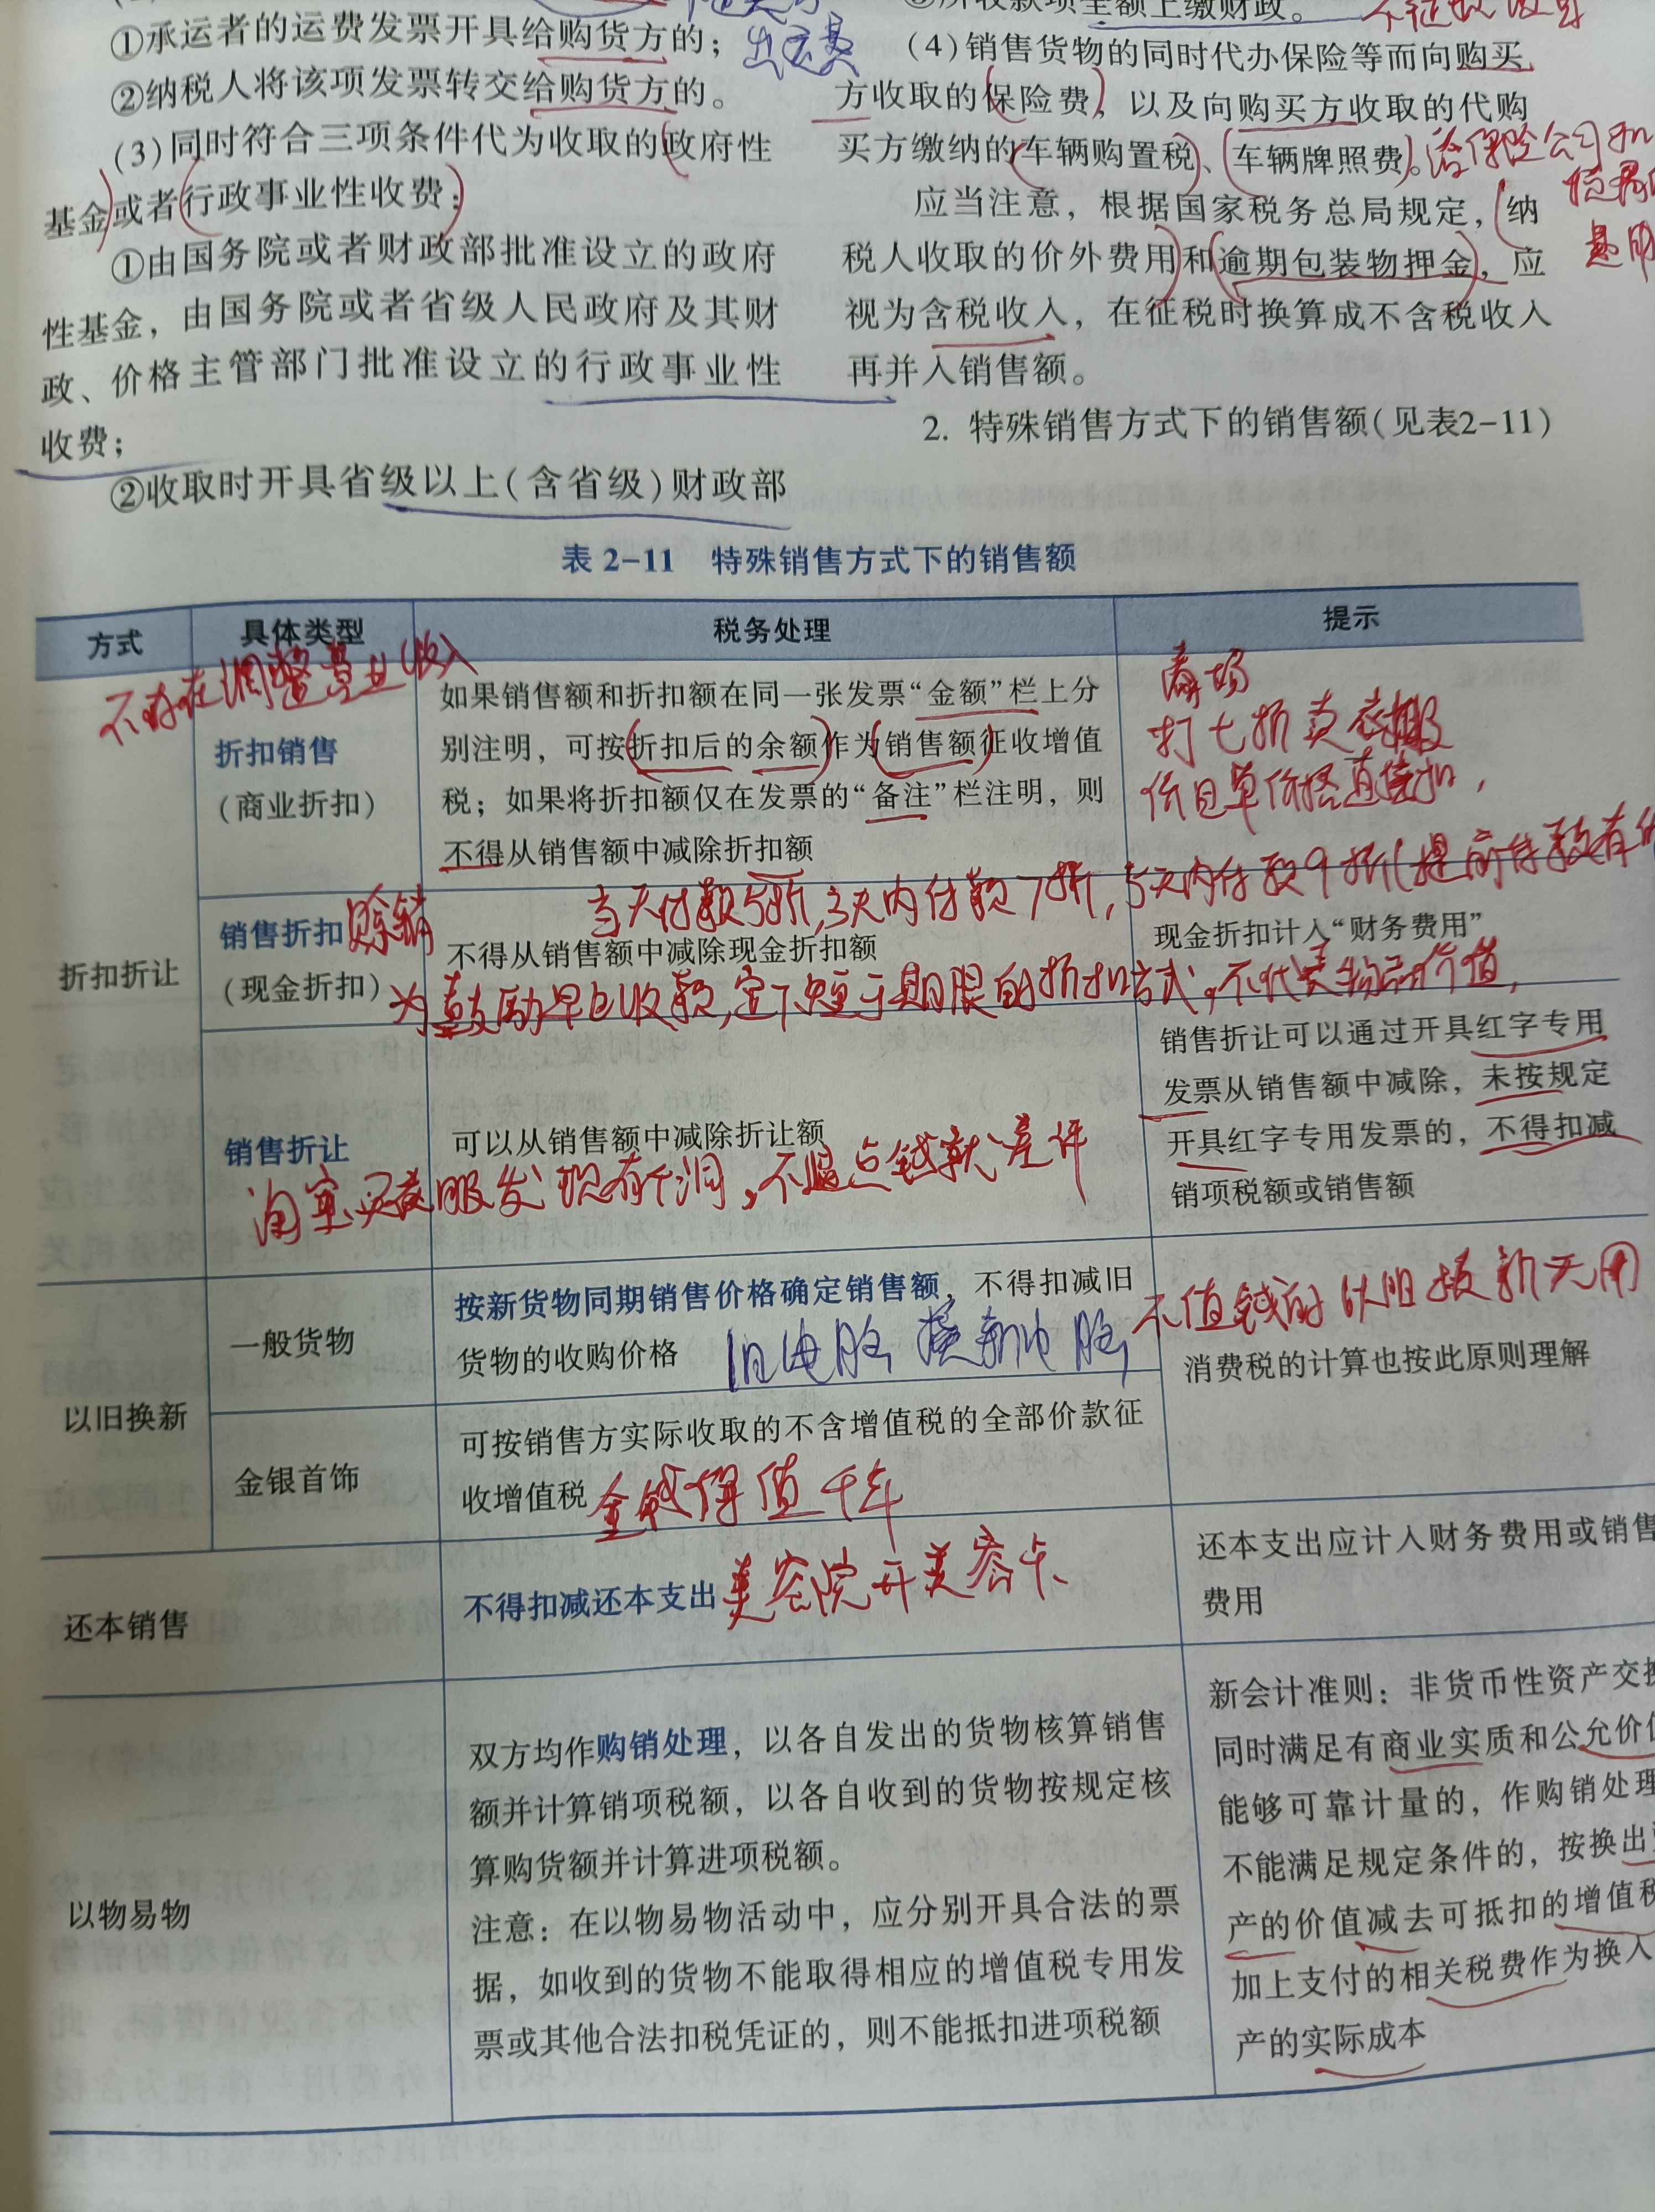 ①承运者的运费发票开具给购货方的；
②纳税人将该项发票转交给购货方的。
(3)同时符合三项条件代为收取的政府性
基金或者行政事业性收费：
①由国务院或者财政部批准设立的政府
性基金，由国务院或者省级人民政府及其财
政、价格主管部门批准设立的行政事业性
收费；
②收取时开具省级以上(含省级)财政部
③所收款项全额上缴财政。
(4)销售货物的同时代办保险等而向购买
方收取的保险费，以及向购买方收取的代购
买方缴纳的车辆购置税、车辆牌照费。
给保险公司和
应当注意，根据国家税务总局规定，纳
税人收取的价外费用和逾期包装物押金，应
视为含税收入，在征税时换算成不含税收入
再并入销售额。
2. 特殊销售方式下的销售额(见表2-11)
表 2-11 特殊销售方式下的销售额
方式 具体类型 税务处理 提示
不存在调整营业收入
折扣折让
折扣销售
(商业折扣)
如果销售额和折扣额在同一张发票“金额”栏上分
别注明，可按折扣后的余额作为销售额征收增值
税；如果将折扣额仅在发票的“备注”栏注明，则
不得从销售额中减除折扣额
商场
打七折卖衣服
价目单价格直接扣，
销售折扣
(现金折扣)
赊销
当天付款5折，3天内付款7折，5天内付款9折(提前付款有
不得从销售额中减除现金折扣额
现金折扣计入“财务费用”
为鼓励早日收款，定下短于期限的折扣方式，不代表物品价值，
销售折让
可以从销售额中减除折让额
淘宝买衣服发现有个洞，不退点钱就差评
销售折让可以通过开具红字专用
发票从销售额中减除，未按规定
开具红字专用发票的，不得扣减
销项税额或销售额
以旧换新
一般货物
按新货物同期销售价格确定销售额，不得扣减旧
货物的收购价格
旧电脑换新电脑
不值钱的以旧换新无用
消费税的计算也按此原则理解
金银首饰
可按销售方实际收取的不含增值税的全部价款征
收增值税
金钱得值千年
还本销售
不得扣减还本支出
美容院开美容卡
还本支出应计入财务费用或销售
费用
以物易物
双方均作购销处理，以各自发出的货物核算销售
额并计算销项税额，以各自收到的货物按规定核
算购货额并计算进项税额。
注意：在以物易物活动中，应分别开具合法的票
据，如收到的货物不能取得相应的增值税专用发
票或其他合法扣税凭证的，则不能抵扣进项税额
新会计准则：非货币性资产交换
同时满足有商业实质和公允价值
能够可靠计量的，作购销处理
不能满足规定条件的，按换出
产的价值减去可抵扣的增值税
加上支付的相关税费作为换入
产的实际成本